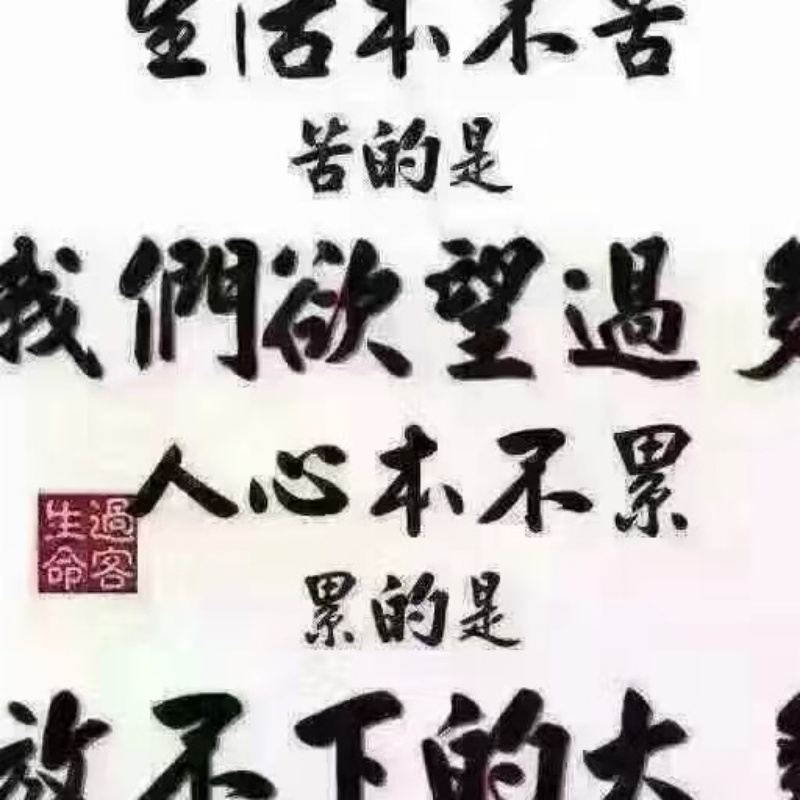 生活本不苦
苦的是
我們欲望過多
人心本不累
過客
生命
累的是
放不下的太多